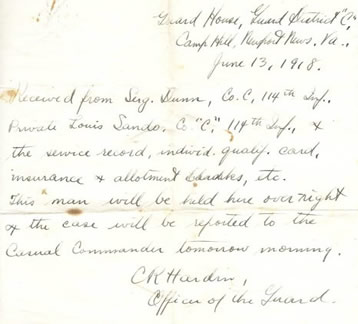 Guard House, Guard District "C"
Camp Hill, Newport News, Va.,
June 13, 1918.
Received from Serg. Dunn, Co. C, 114th Inf.,
Private Louis Sando. Co. "C," 114th Inf., &
the service record, individ. qualif. card,
insurance & allotment blanks, etc.
This man will be held here over night
& the case will be reported to the
Casual Commander tomorrow morning.
CK Hardin,
Officer of the Guard.